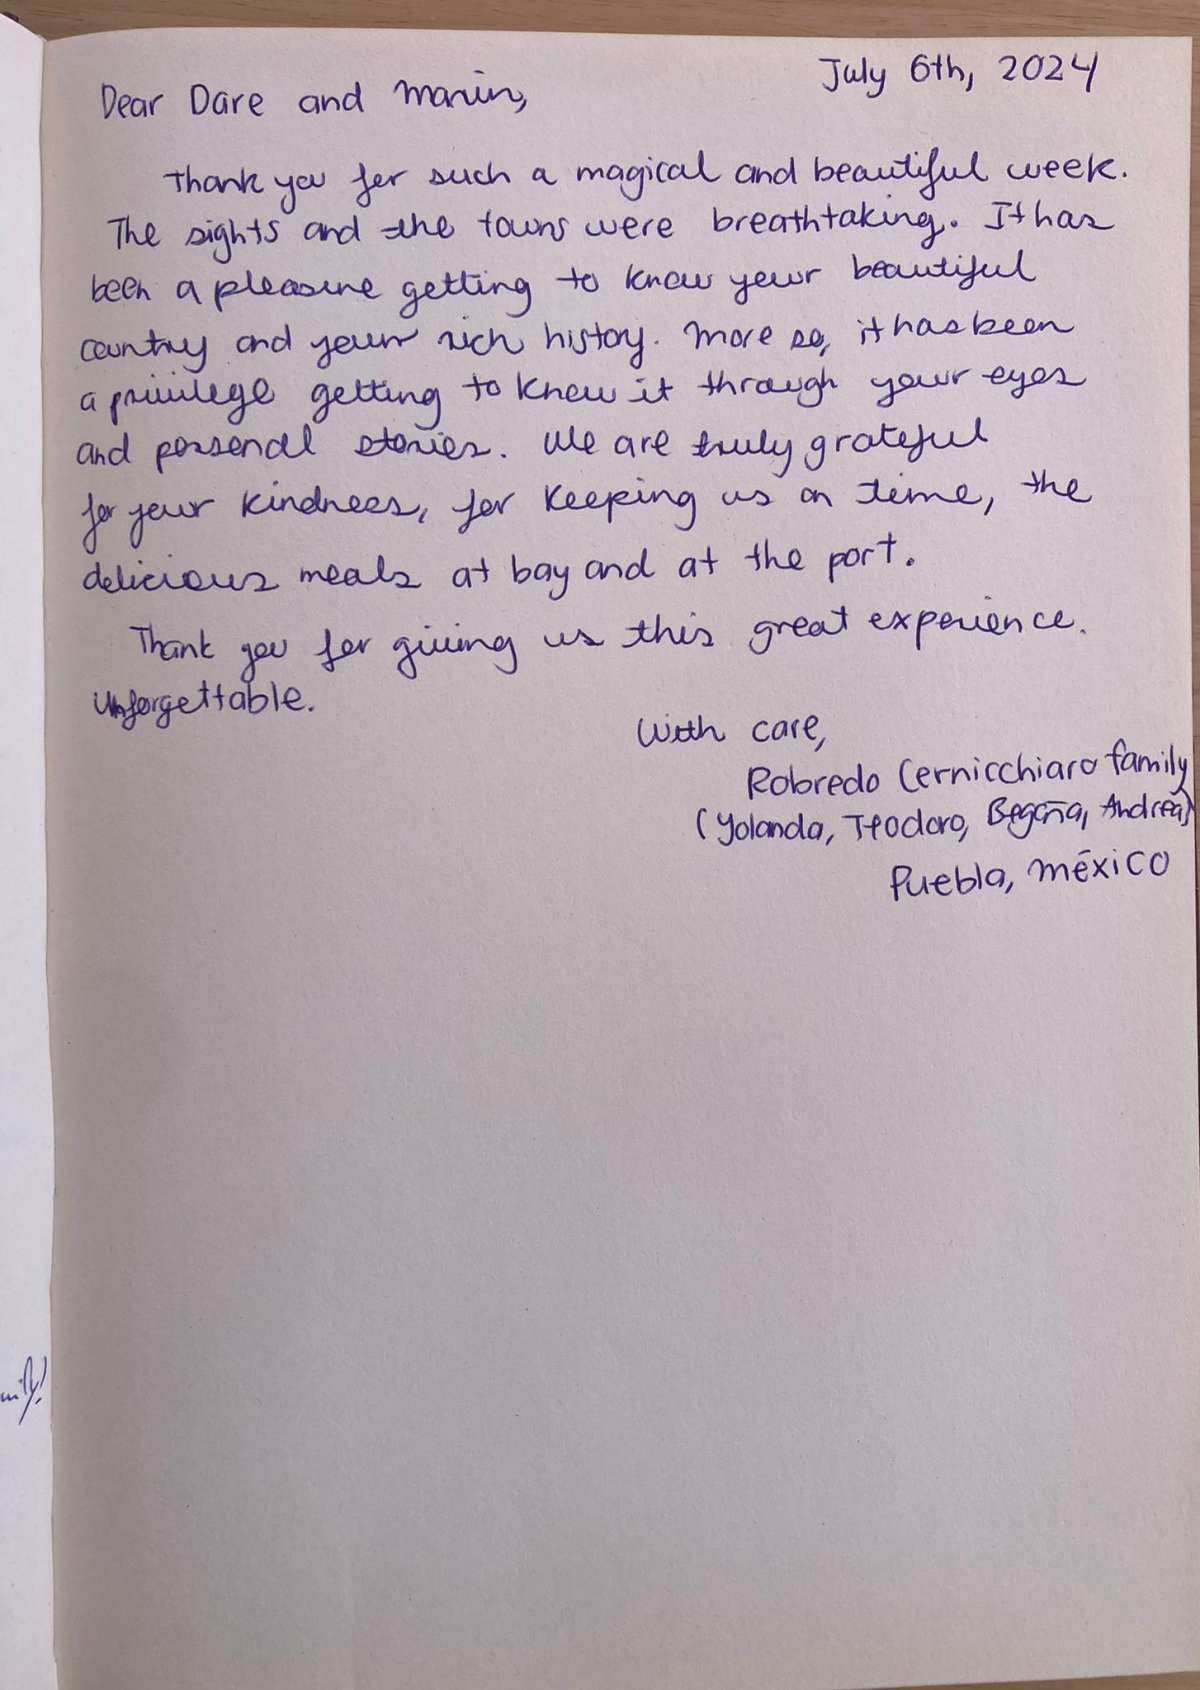 July 6th, 2024
Dear Dare and Marin,
Thank you for such a magical and beautiful week.
The sights and the towns were breathtaking. It has
been a pleasure getting to know your beautiful
country and your rich history. More so, it has been
a privilege getting to know it through your eyes
and personal stories. We are truly grateful
for your kindness, for keeping us on time, the
delicious meals at bay and at the port.
Thank you for giving us this great experience.
Unforgettable.
With care,
Robredo Cernicchiaro family
(Yolanda, Teodoro, Begoña, Andrea)
Puebla, México